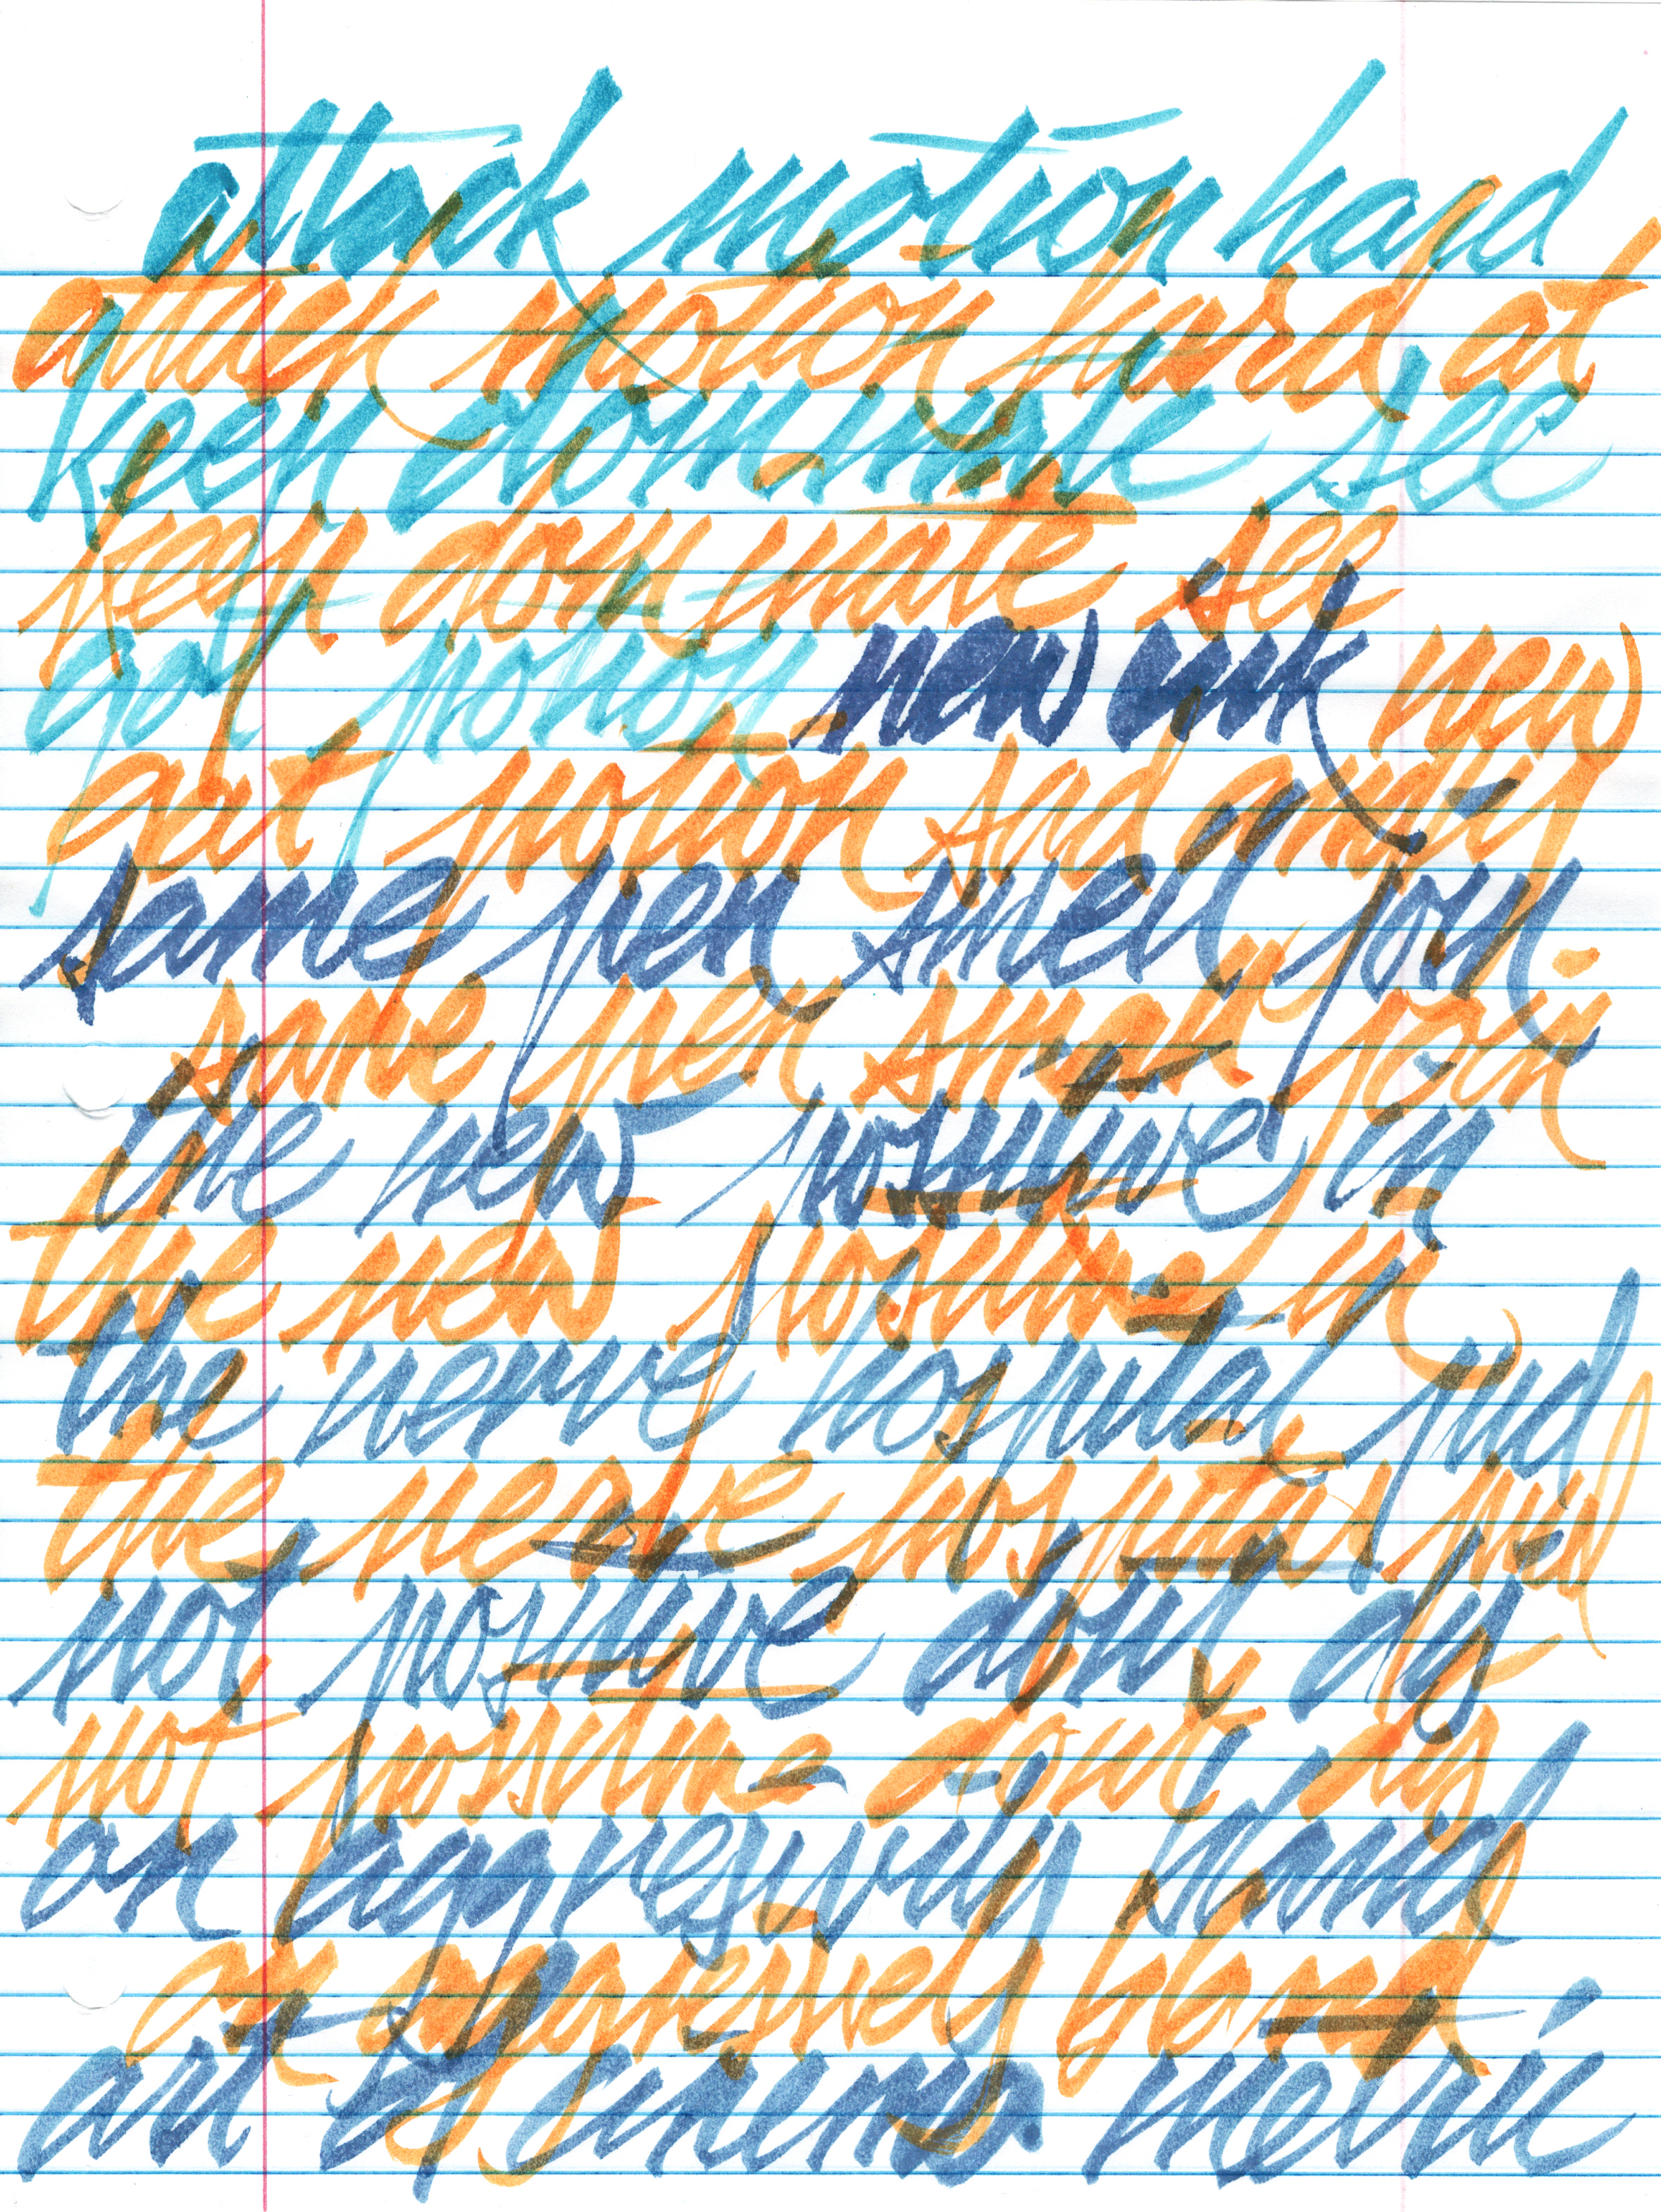 attack motion hard
attack motion hard at
keep dominate see
keep dominate see
got potion new ink new
got potion sad
same pen smell join
same pen small join
the new positive in
the new positive in
the nerve hospital
the nerve hospital
not positive don't
not positive don't
an aggresively bland
an aggresively bland
art of cinema metric